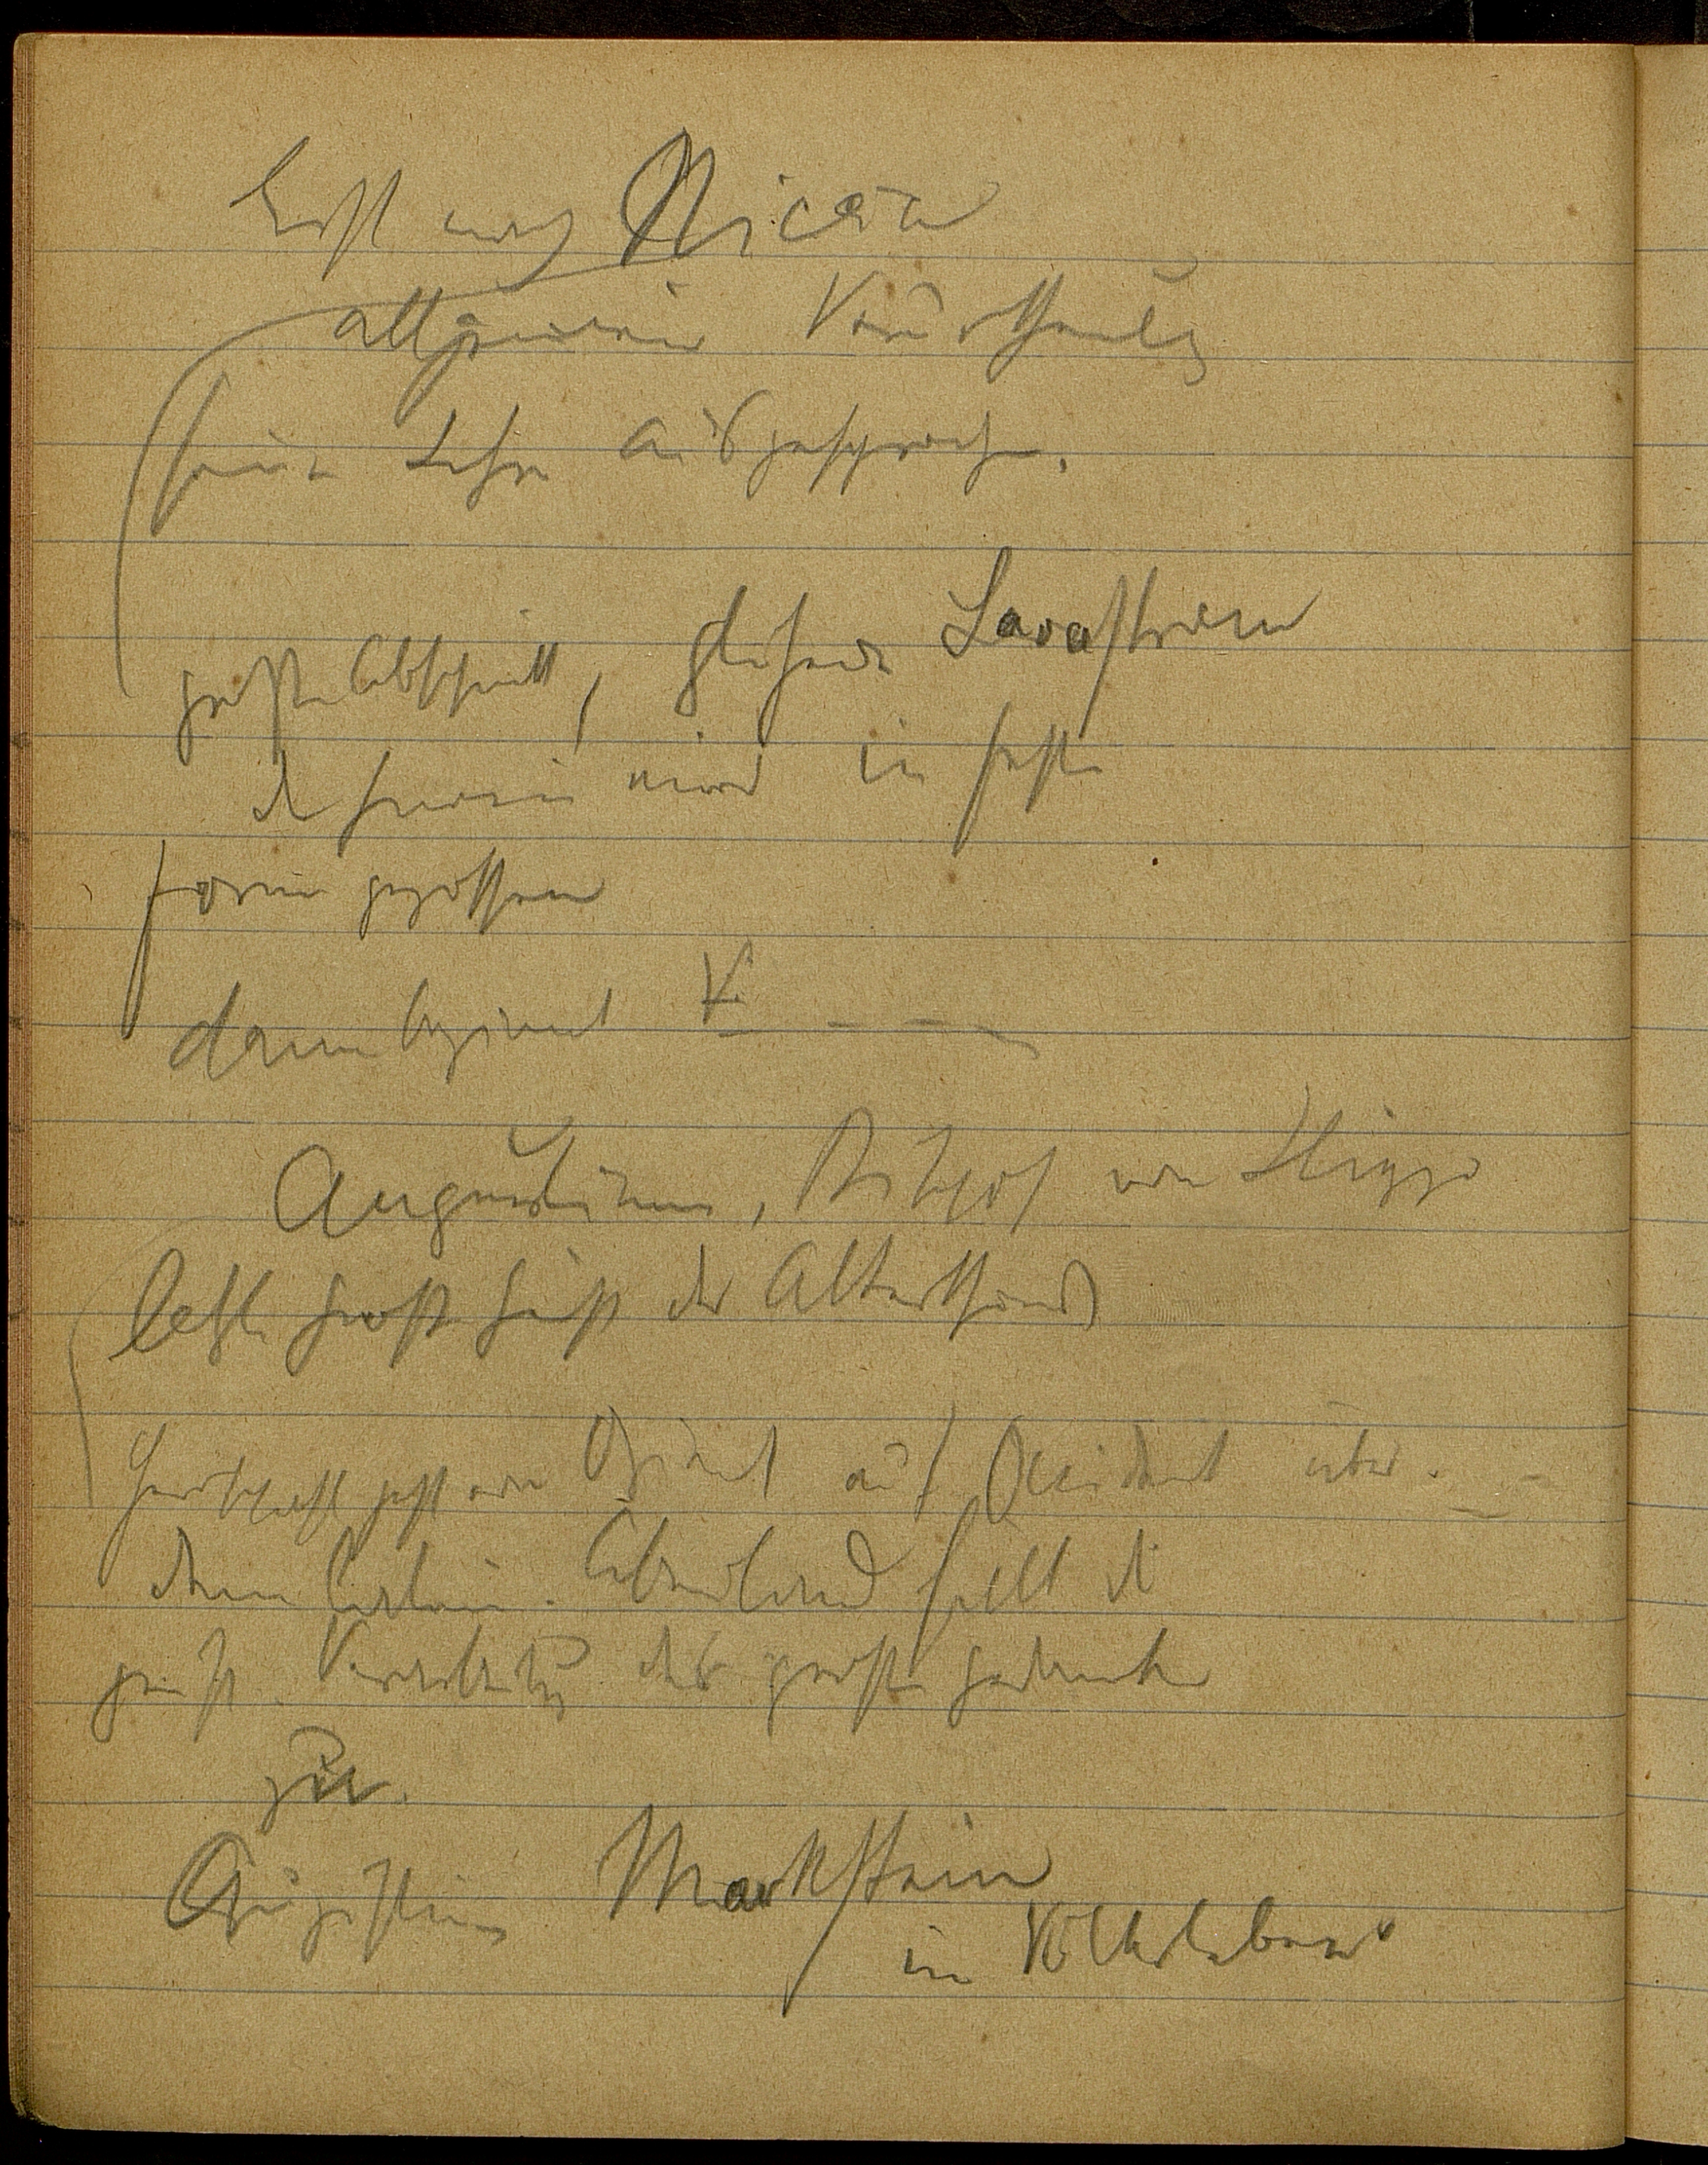 Erst nach Nicäa
allgemeine Verurtheilung
seiner Lehre ausgesprochen.
großer Abschnitt, glühender Lavastrom
der wird in feste
Form gegossen
dann beginnt V.
Augustinus, Bischof von Hippo
letzte große Geist des Alterthums
Herrschaft geht von Orient auf Occident über.
dem latein. Abendland fällt die
geist. Verarbeitung des großen Gedanken
zu.
Augustinus Markstein
im Völkerleben